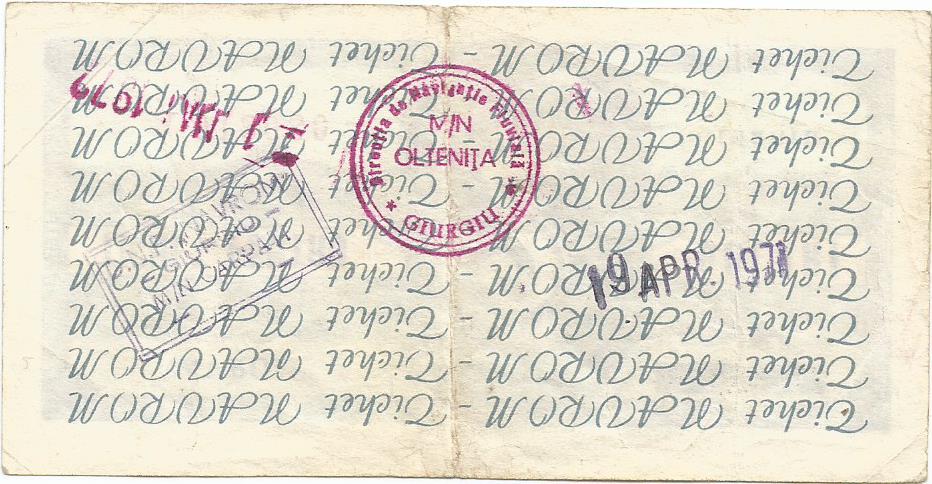 Tichet NAVROM - Tichet NAVROM
Tichet NAVROM - Tichet NAVROM
Tichet NAVROM - Tichet NAVROM
Tichet NAVROM - Tichet NAVROM
Tichet NAVROM - Tichet NAVROM
Tichet NAVROM - Tichet NAVROM
Tichet NAVROM - Tichet NAVROM
Tichet NAVROM - Tichet NAVROM
Tichet NAVROM - Tichet NAVROM
Direcția de Navigație Fluvială
M/N
OLTENIȚA
* GIURGIU *
NAVROM
GIURGIU
M/N
19 APR.